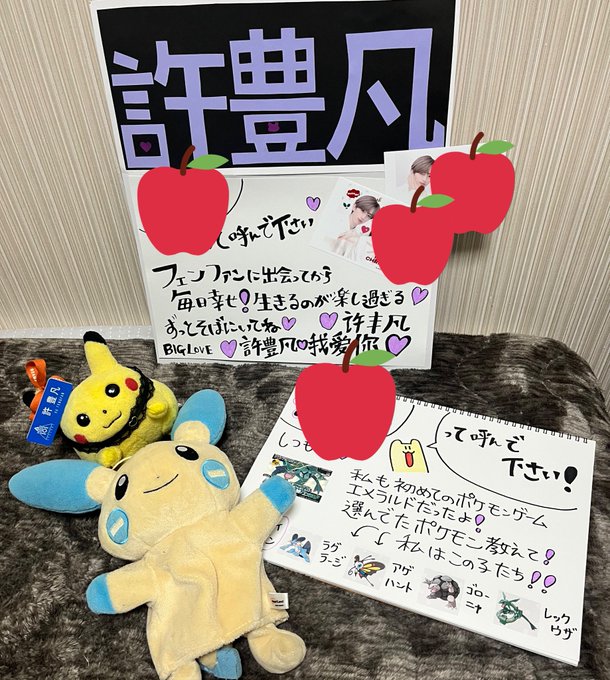 許豊凡
って呼んで下さい
フェンファンに出会ってから
毎日幸せ!生きるのが楽し過ぎる
ずっとそばにいてね 許丰凡
BIG LOVE 許豊凡 我爱你
許豊凡
って呼んで
下さい!
しつも
私も初めてのポケモンゲーム
エメラルドだったよ!
選んでたポケモン教えて!
私はこの子たち!!
ラグ
ラージ
アゲ
ハント
ゴロー
ニャ
レック
ウザ